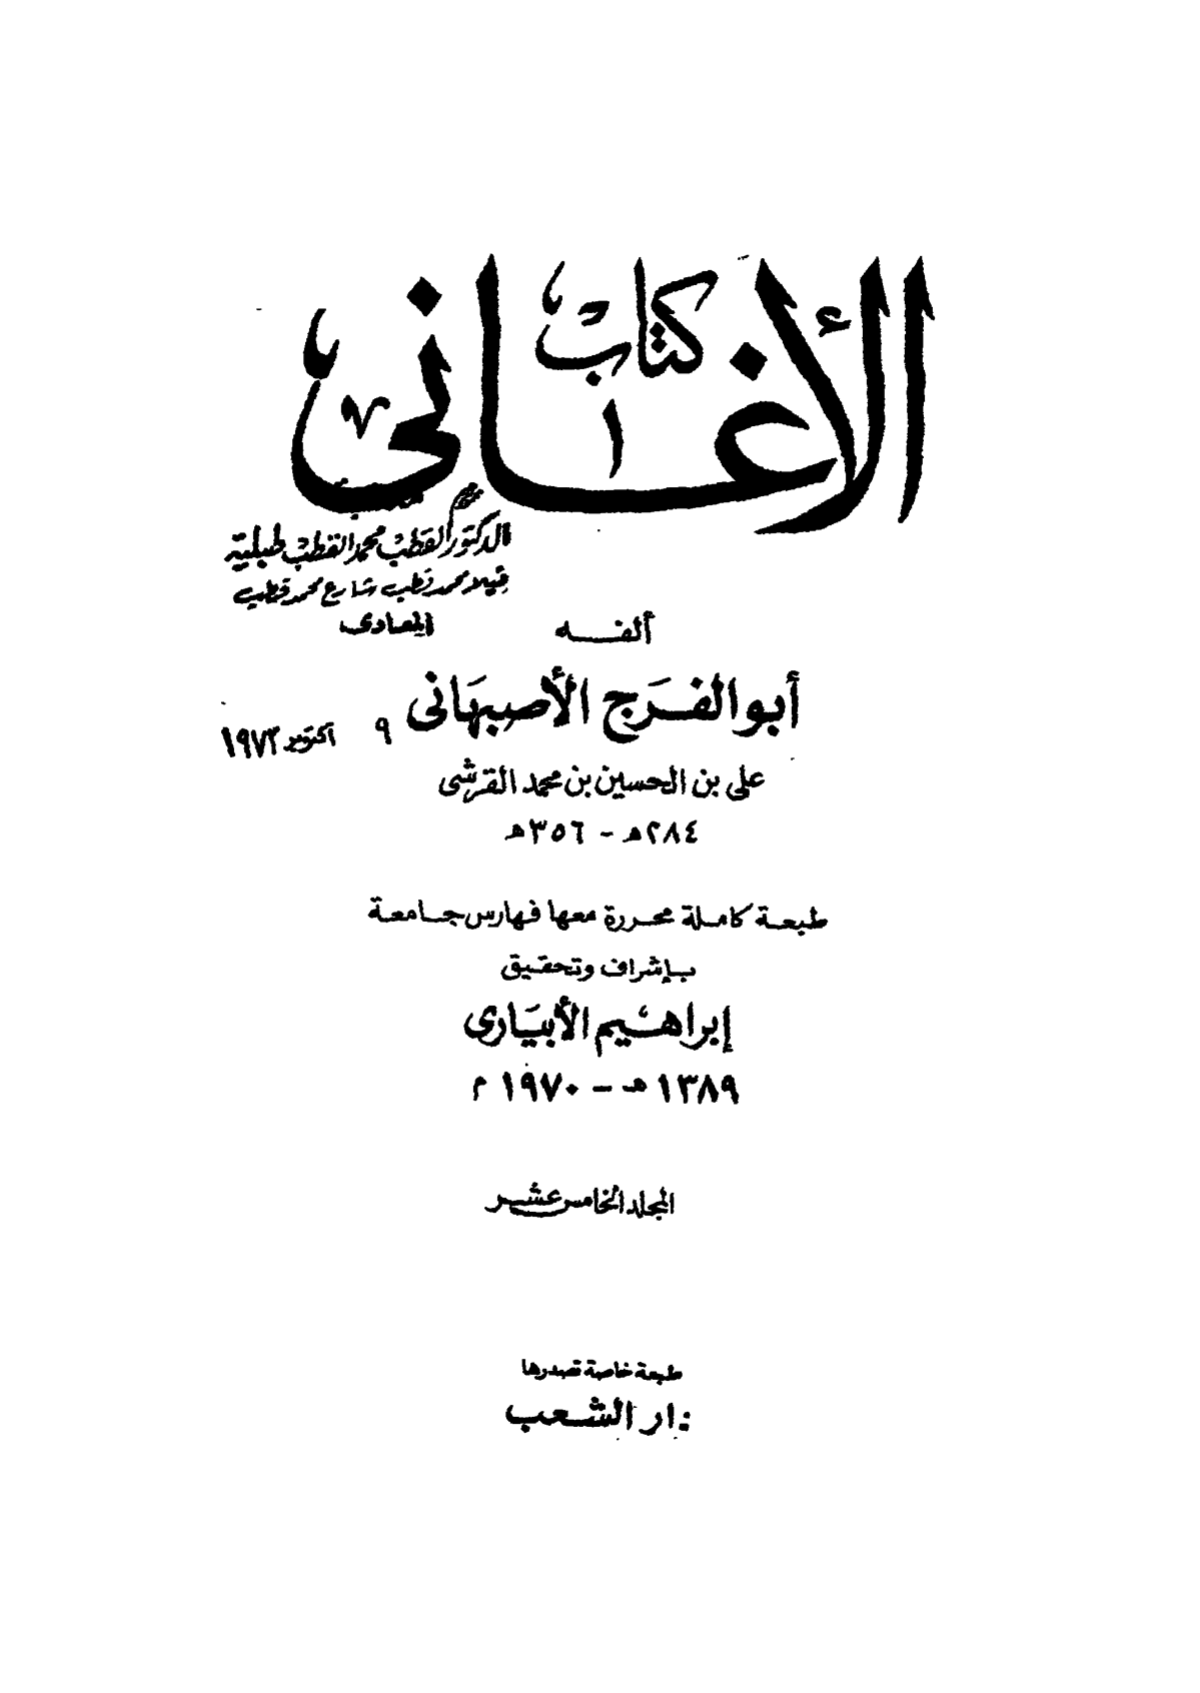 كتاب
الأغانى
الدكتور القطب محمد القطب طبلية
ڤيلا محمد قطب شارع محمد قطب
المعادى
٩ أكتوبر ١٩٧٢
ألفه
أبو الفرج الأصبهانى
على بن الحسين بن محمد القرشى
٢٨٤ هـ - ٣٥٦ هـ
طبعة كاملة محررة معها فهارس جامعة
بإشراف وتحقيق
إبراهيم الأبيارى
١٣٨٩ هـ - ١٩٧٠ م
المجلد الخامس عشر
طبعة خاصة تصدرها
دار الشعب